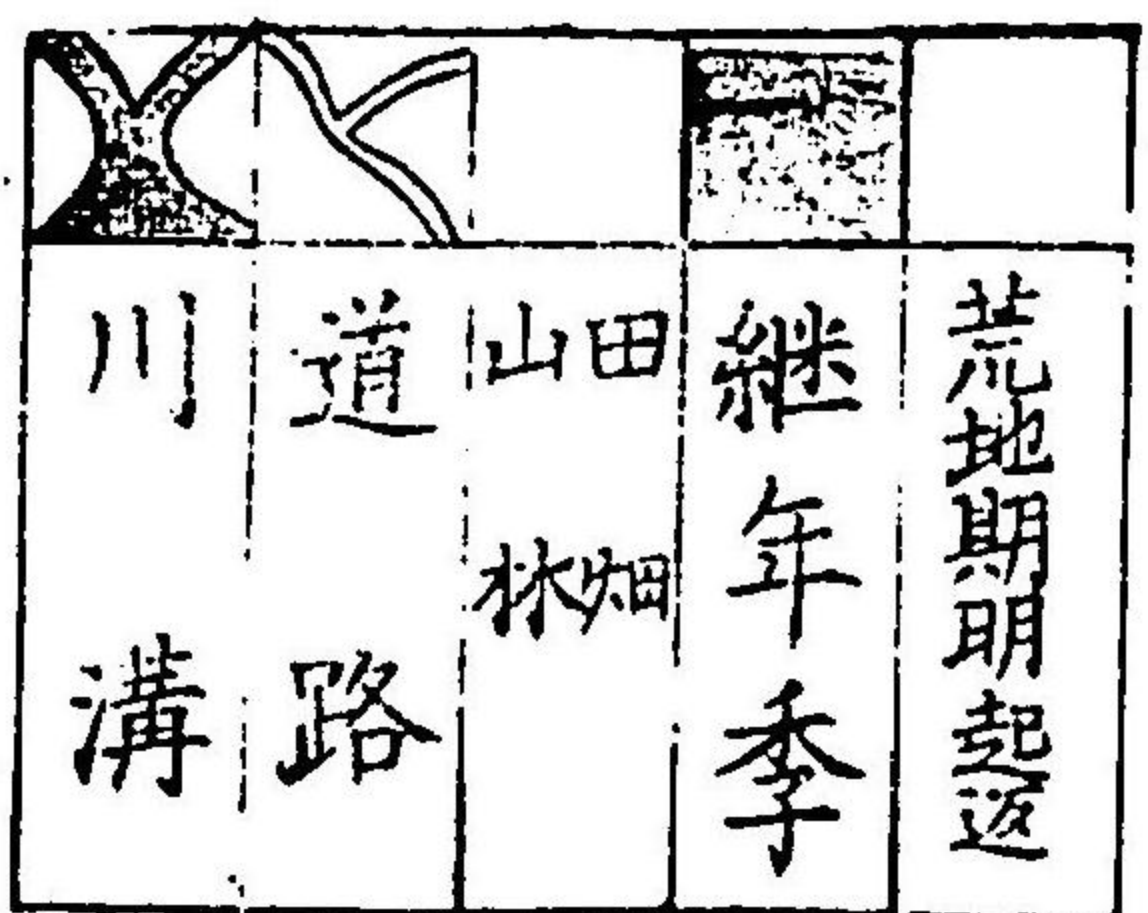 荒地期明起返
継年季
田畑
山林
道路
川溝